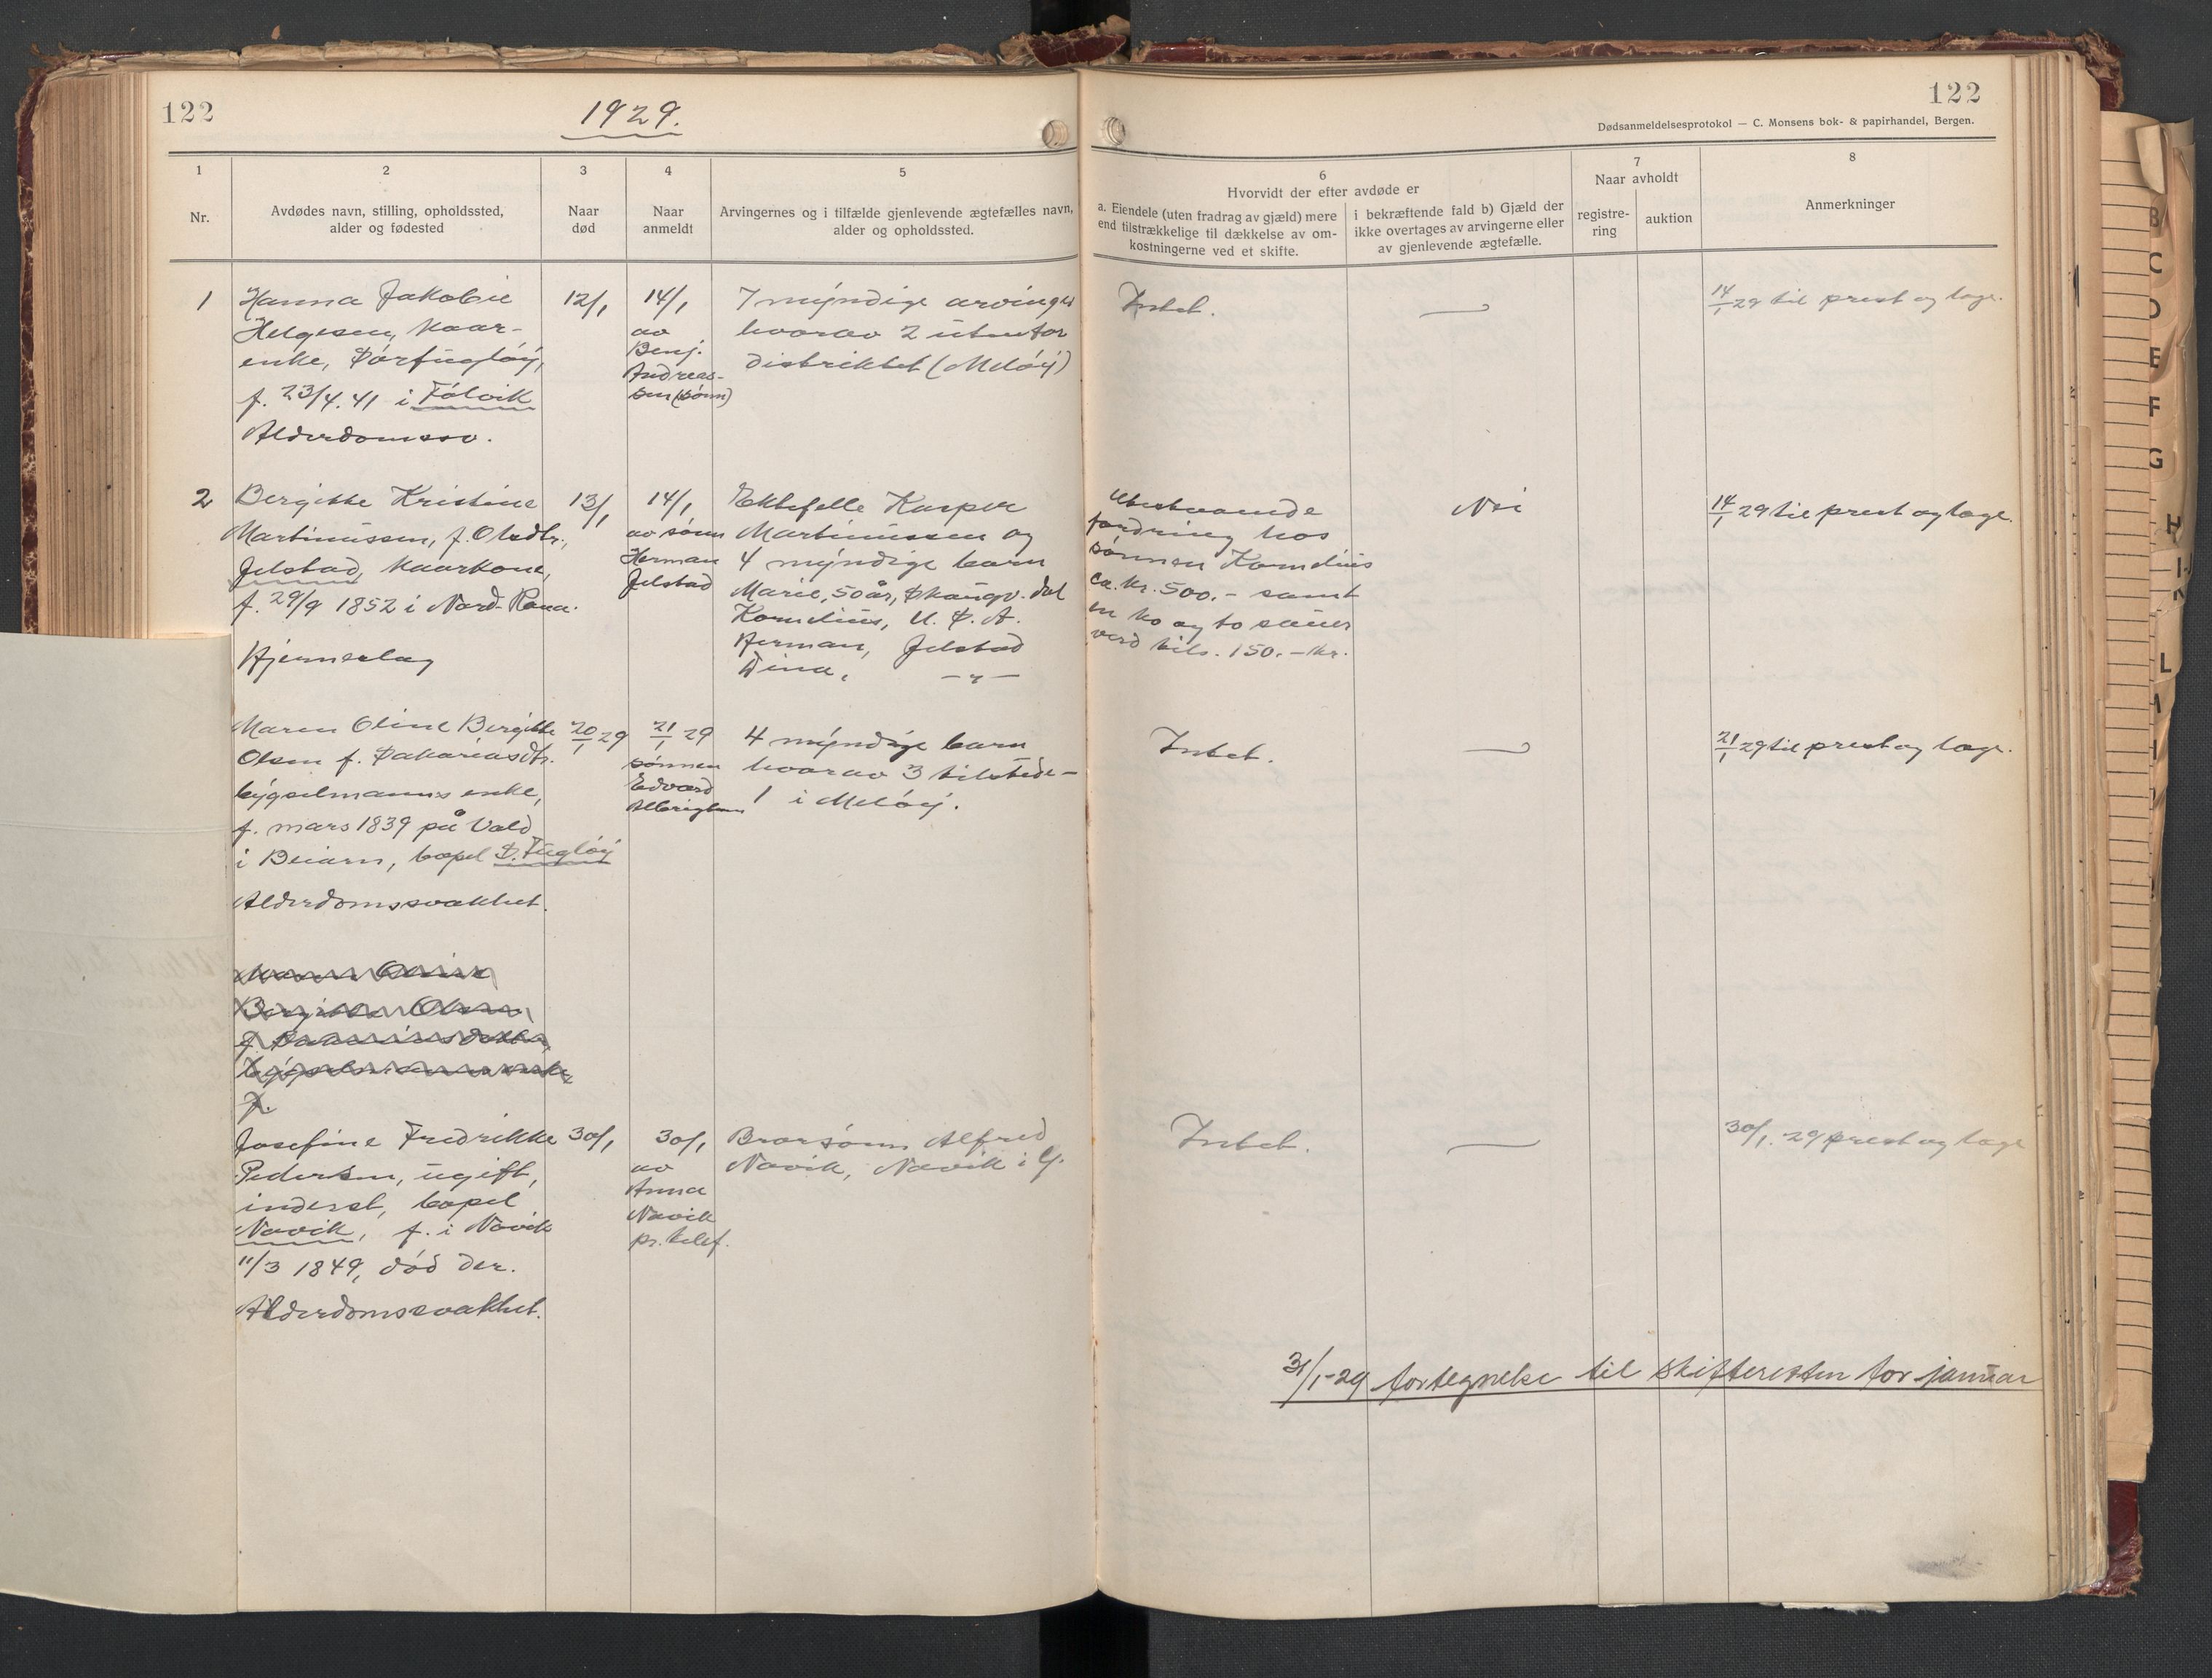 122
1929.
122
Dødsanmeldelsesprotokol — C. Monsens bok- & papirhandel, Bergen.
1
Nr.
2
Avdødes navn, stilling, opholdssted,
alder og fødested
3
Naar
død
4
Naar
anmeldt
5
Arvingernes og i tilfælde gjenlevende ægtefælles navn,
alder og opholdssted.
6
Hvorvidt der efter avdøde er
a. Eiendele (uten fradrag av gjæld) mere
end tilstrækkelige til dækkelse av om-
kostningerne ved et skifte.
i bekræftende fald b) Gjæld der
ikke overtages av arvingerne eller
av gjenlevende ægtefælle.
7
Naar avholdt
registre-
ring
auktion
8
Anmerkninger
1
Hanna Jakobie
Helgesen, kaar-
enke, Sørfugløy,
f. 23/4. 41 i Følvik
Alderdomssv.
12/1
14/1
av
Benj.
Andreas-
sen (sønn)
7 myndige arvinger
hvorav 2 utenfor
distriktet (Meløy)
Intet.
14/1 29 til prest og læge.
2
Bergitte Kristine
Martinussen, f. Olsdtr.,
Jelstad, kaarkone,
f. 29/9 1852 i Nord-Rana.
Hjerneslag
13/1
14/1
av sønn
Herman
Jelstad
Ektefelle Kasper
Martinussen og
4 myndige barn
Marie, 50 år, Skaugv. dal
Kornelius, U. S. A.
Herman, Jelstad
Dina, — " —
Utestaaende
fordring hos
sønnen Kornelius
ca. kr. 500.- samt
en ko og to sauer
verd tils. 150.- kr.
Nei
14/1 29 til prest og læge.
Maren Oline Bergitte
Olsen f. Sakariasdtr.
bygselmanns enke,
f. mars 1839 på Vold
i Beiarn, bopel S. Fugløy
Alderdomssvakhet.
20/1 29
21/1 29
sønnen
Edvard
Albrigtsen
4 myndige barn
hvorav 3 tilstede -
1 i Meløy.
Intet.
21/1 29 til prest og læge.
Maren Oline
Bergitte Olsen
f. Sakariasdatter,
bygselmanns enke,
f.
Josefine Fredrikke
Pedersen, ugift,
inderst, bopel
Novik, f. i Novik
11/3 1849, død der.
Alderdomssvakhet.
30/1
30/1
av
Anna
Novik
pr. telef.
Brorsønn Alfred
Novik, Novik i G.
Intet.
30/1. 29 prest og læge
31/1-29 fortegnelse til skifteretten for januar